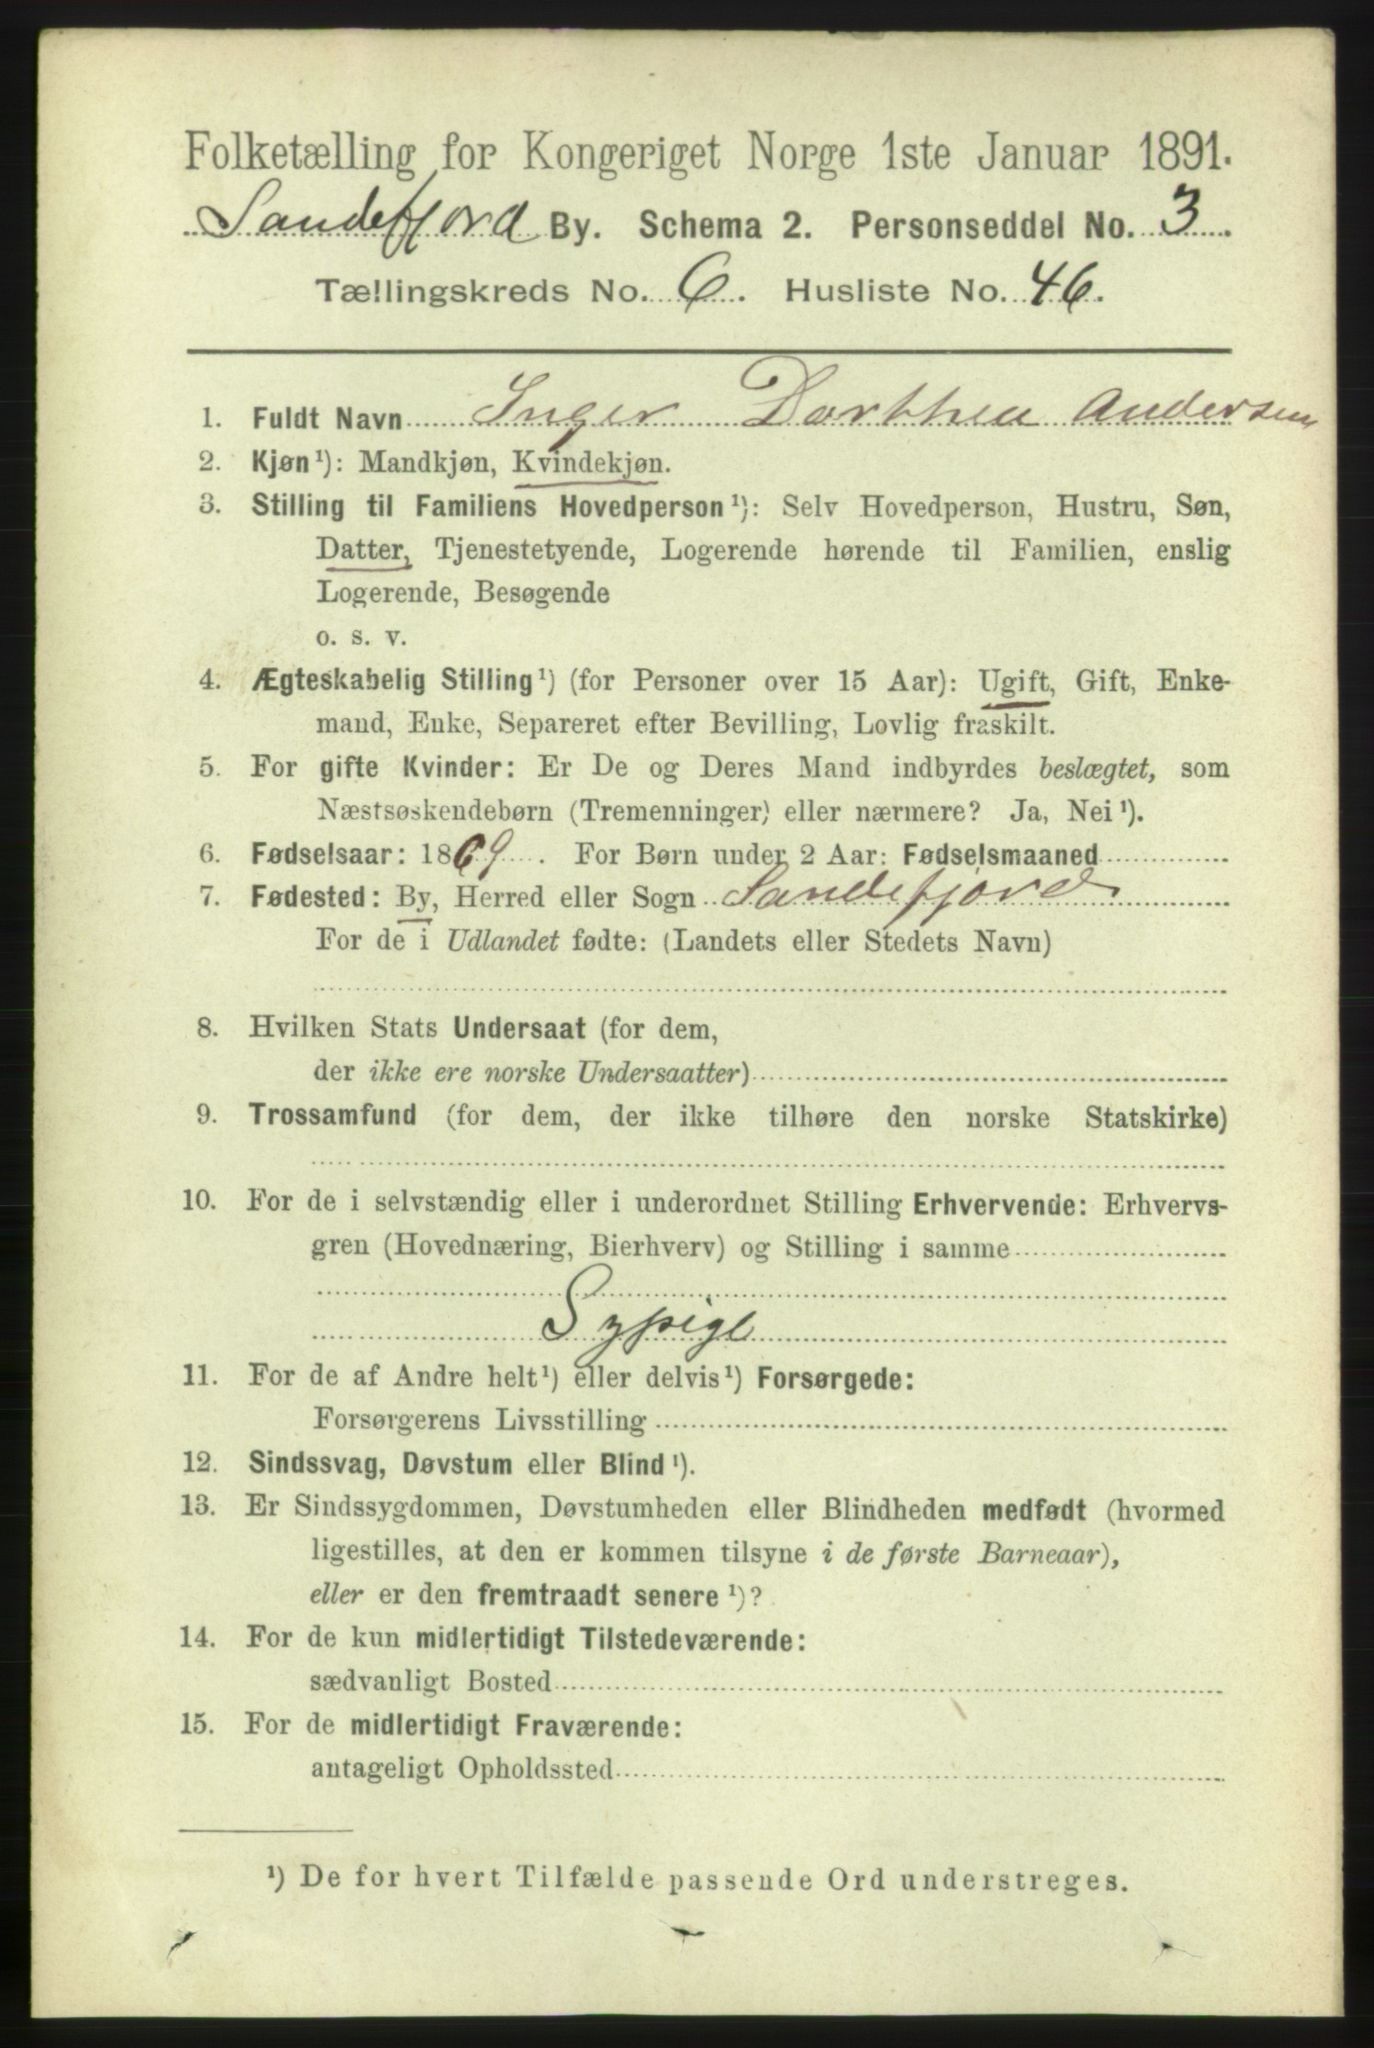 Folketælling for Kongeriget Norge 1ste Januar 1891.
Sandefjord By. Schema 2. Personseddel No. 3.
Tællingskreds No. 6. Husliste No. 46.
1. Fuldt Navn Inger Dorthea Andersen
2. Kjøn¹): Mandkjøn, Kvindekjøn.
3. Stilling til Familiens Hovedperson¹): Selv Hovedperson, Hustru, Søn,
Datter, Tjenestetyende, Logerende hørende til Familien, enslig
Logerende, Besøgende
o. s. v.
4. Ægteskabelig Stilling¹) (for Personer over 15 Aar): Ugift, Gift, Enke-
mand, Enke, Separeret efter Bevilling, Lovlig fraskilt.
5. For gifte Kvinder: Er De og Deres Mand indbyrdes beslægtet, som
Næstsøskendebørn (Tremenninger) eller nærmere? Ja, Nei¹).
6. Fødselsaar: 1869. For Børn under 2 Aar: Fødselsmaaned
7. Fødested: By, Herred eller Sogn Sandefjord
For de i Udlandet fødte: (Landets eller Stedets Navn)
8. Hvilken Stats Undersaat (for dem,
der ikke ere norske Undersaatter)
9. Trossamfund (for dem, der ikke tilhøre den norske Statskirke)
10. For de i selvstændig eller i underordnet Stilling Erhvervende: Erhvervs-
gren (Hovednæring, Bierhverv) og Stilling i samme
Sypige
11. For de af Andre helt¹) eller delvis¹) Forsørgede:
Forsørgerens Livsstilling
12. Sindssvag, Døvstum eller Blind¹).
13. Er Sindssygdommen, Døvstumheden eller Blindheden medfødt (hvormed
ligestilles, at den er kommen tilsyne i de første Barneaar),
eller er den fremtraadt senere¹)?
14. For de kun midlertidigt Tilstedeværende:
sædvanligt Bosted
15. For de midlertidigt Fraværende:
antageligt Opholdssted
¹) De for hvert Tilfælde passende Ord understreges.